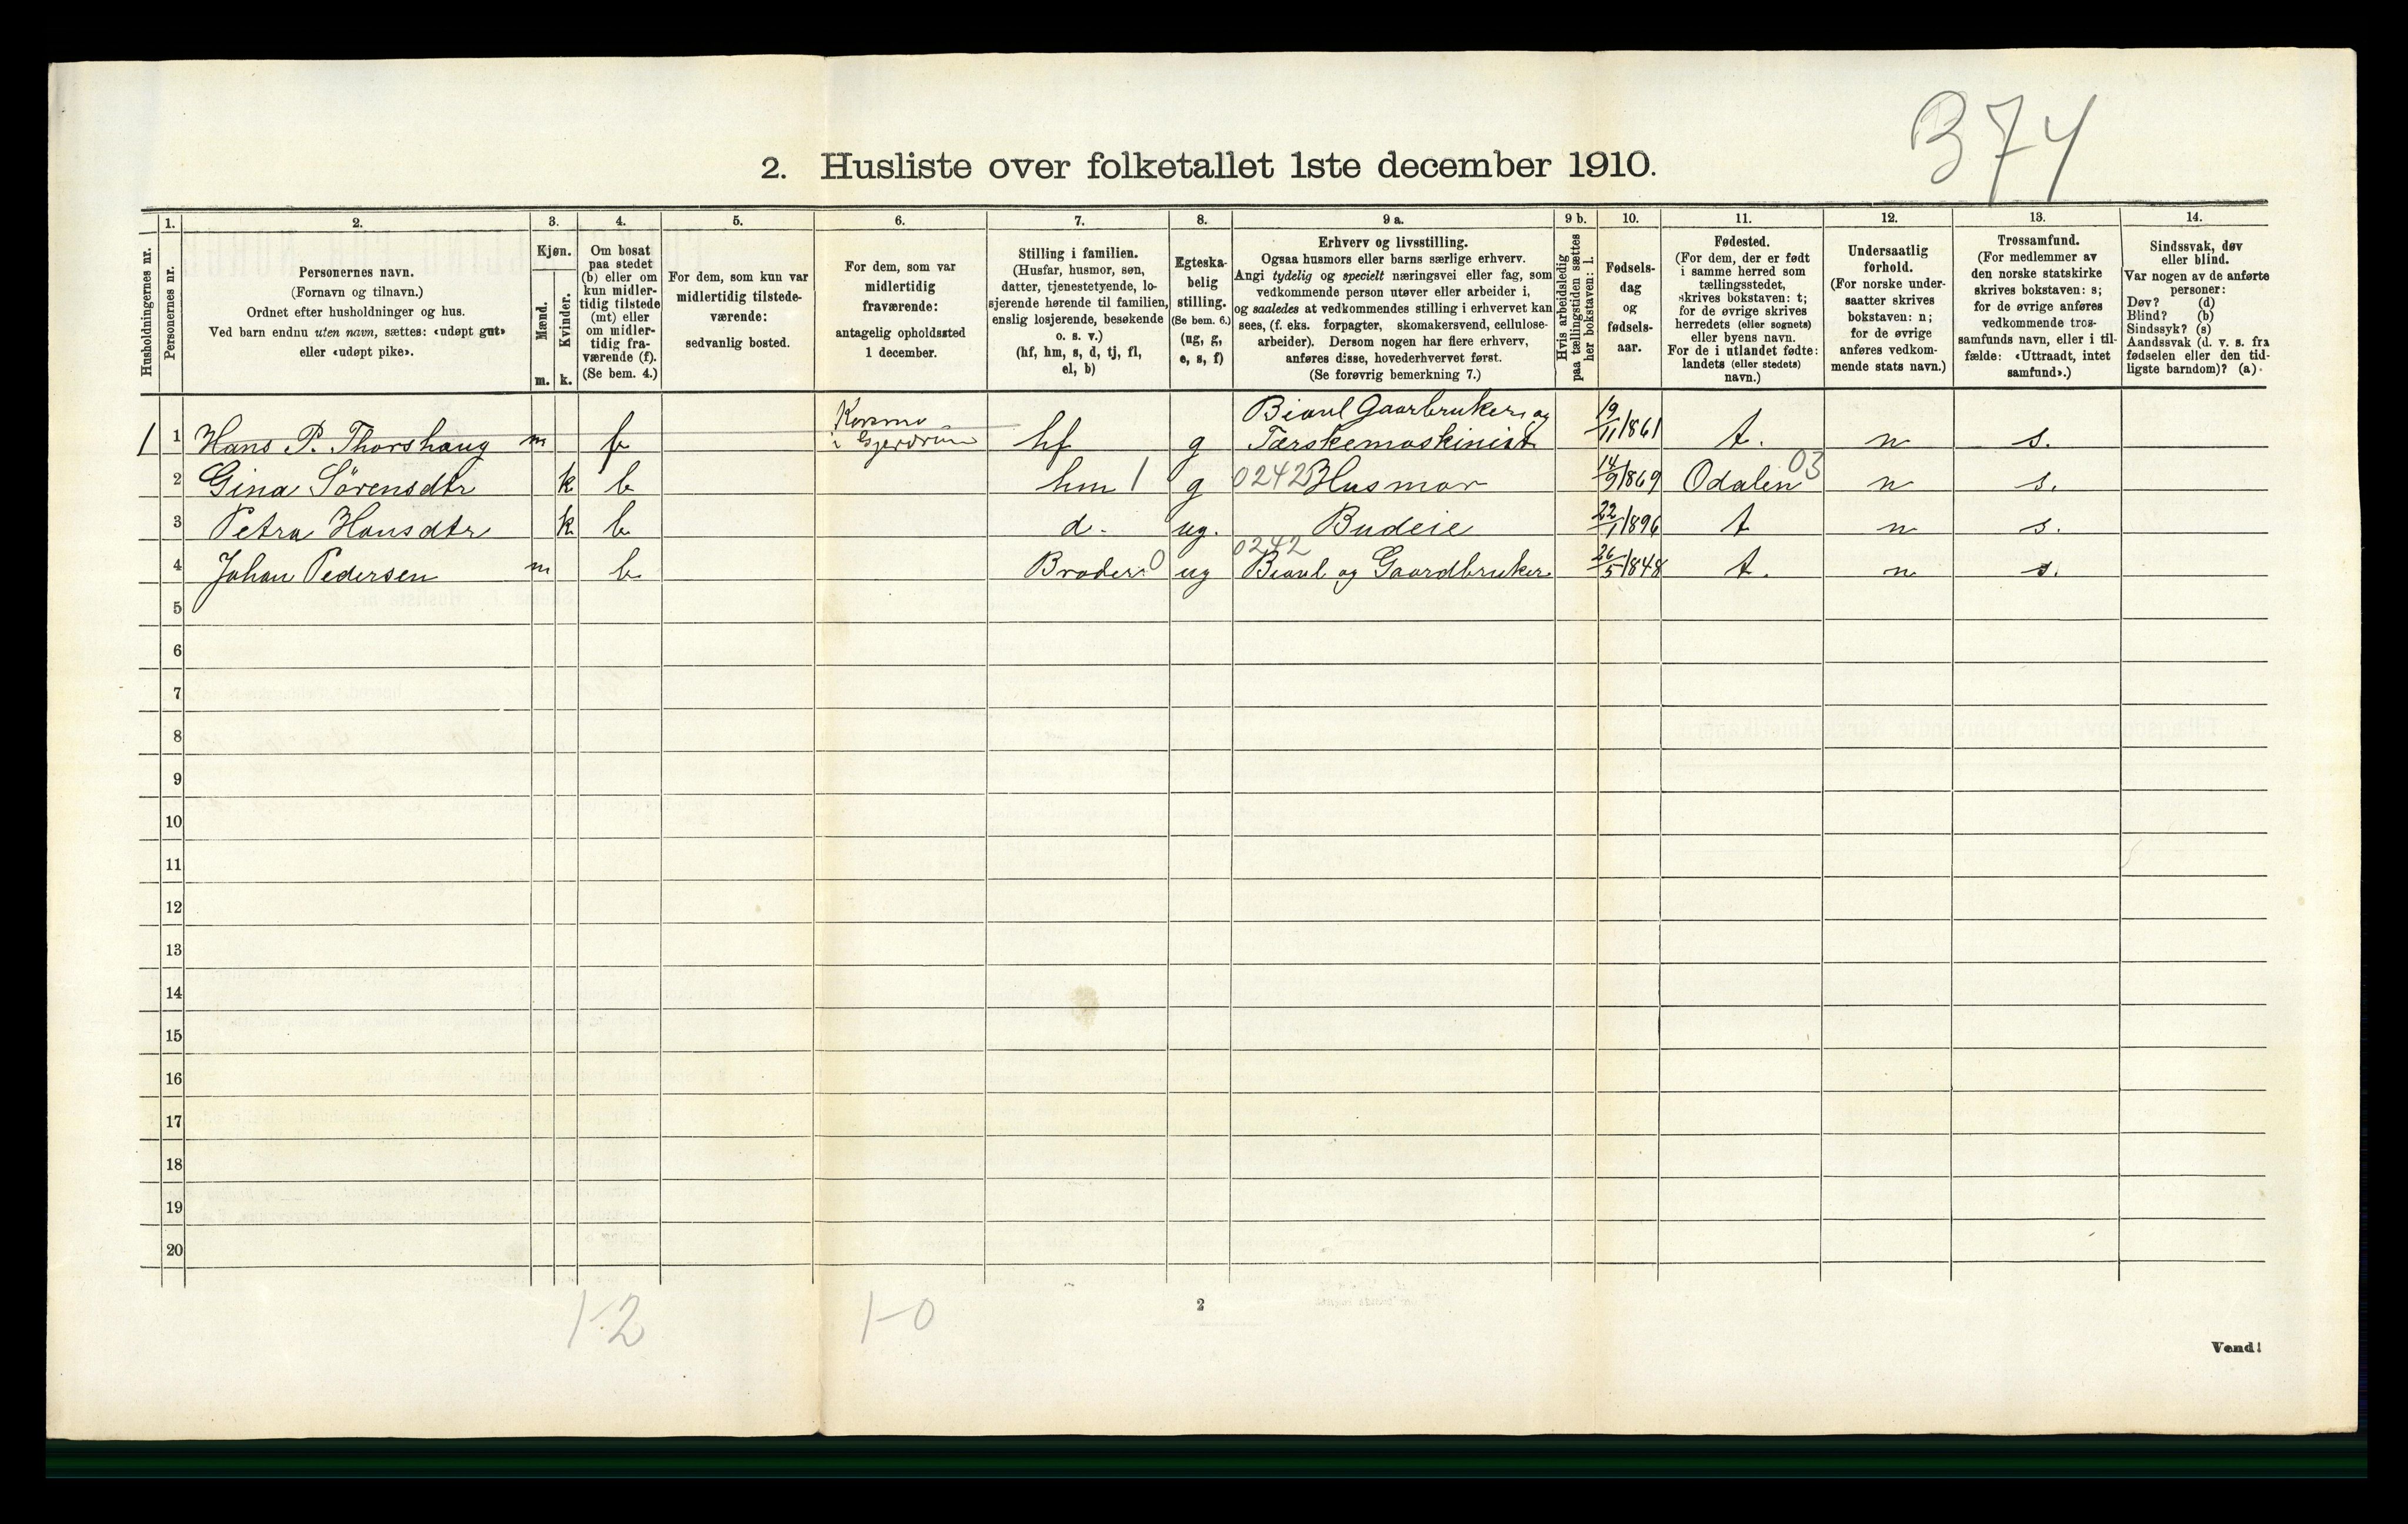 B74
2. Husliste over folketallet 1ste december 1910.
Husholdningernes nr.
1.
Personernes nr.
2.
Personernes navn.
(Fornavn og tilnavn.)
Ordnet efter husholdninger og hus.
Ved barn endnu uten navn, sættes: «udøpt gut»
eller «udøpt pike».
3.
Kjøn.
Mænd.
m.
Kvinder.
k.
4.
Om bosat
paa stedet
(b) eller om
kun midler-
tidig tilstede
(mt) eller
om midler-
tidig fra-
værende (f).
(Se bem. 4.)
5.
For dem, som kun var
midlertidig tilstede-
værende:
sedvanlig bosted.
6.
For dem, som var
midlertidig
fraværende:
antagelig opholdssted
1 december.
7.
Stilling i familien.
(Husfar, husmor, søn,
datter, tjenestetyende, lo-
sjerende hørende til familien,
enslig losjerende, besøkende
o. s. v.)
(hf, hm, s, d, tj, fl,
el, b)
8.
Egteska-
belig
stilling.
(Se bem. 6.)
(ug, g,
e, s, f)
9 a.
Erhverv og livsstilling.
Ogsaa husmors eller barns særlige erhverv.
Angi tydelig og specielt næringsvei eller fag, som
vedkommende person utøver eller arbeider i,
og saaledes at vedkommendes stilling i erhvervet kan
sees, (f. eks. forpagter, skomakersvend, cellulose-
arbeider). Dersom nogen har flere erhverv,
anføres disse, hovederhvervet først.
(Se forøvrig bemerkning 7.)
9 b.
Hvis arbeidsledig
paa tællingstiden sættes
her bokstaven: l.
10.
Fødsels-
dag
og
fødsels-
aar.
11.
Fødested.
(For dem, der er født
i samme herred som
tællingsstedet,
skrives bokstaven: t;
for de øvrige skrives
herredets (eller sognets)
eller byens navn.
For de i utlandet fødte:
landets (eller stedets)
navn.)
12.
Undersaatlig
forhold.
(For norske under-
saatter skrives
bokstaven: n;
for de øvrige
anføres vedkom-
mende stats navn.)
13.
Trossamfund.
(For medlemmer av
den norske statskirke
skrives bokstaven: s;
for de øvrige anføres
vedkommende tros-
samfunds navn, eller i til-
fælde: «Uttraadt, intet
samfund».)
14.
Sindssvak, døv
eller blind.
Var nogen av de anførte
personer:
Døv? (d)
Blind? (b)
Sindssyk? (s)
Aandssvak (d. v. s. fra
fødselen eller den tid-
ligste barndom)? (a).
1 1 Hans P. Thorshaug m f Korsmo i Gjerdrum hf g Tærskemaskinist 19/11 1861 t. n s.
2 Gina Sörensdtr k b hm 1 g 0242 Husmor 14/9 1869 Odalen 03 n s.
3 Petra Hansdtr k b d. ug. Budeie 22/1 1896 t n s.
4 Johan Pedersen m b Broder 0 ug 0242 og Gaardbruker 26/5 1848 t. n s.
5
6
7
8
9
10
11
12
13
14
15
16
17
18
19
20
1-2 1-0 2
Vend!